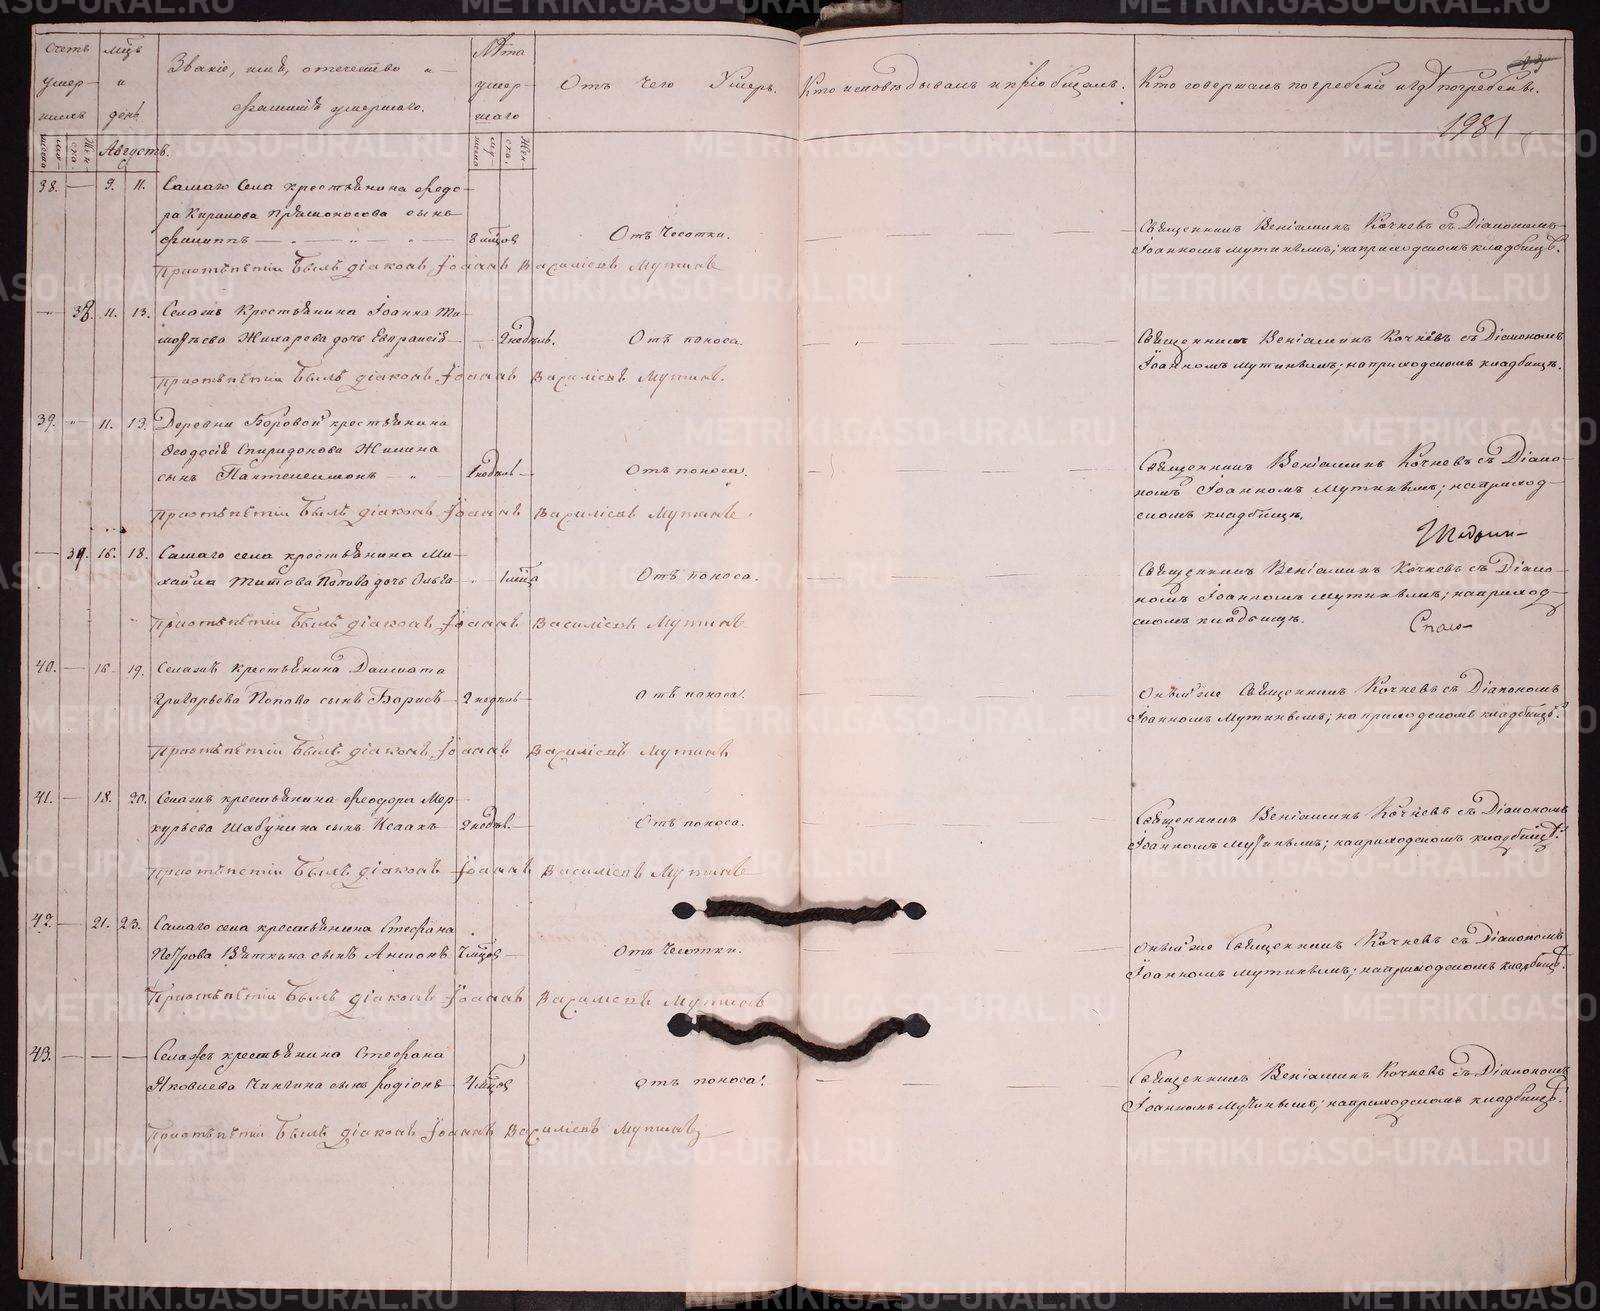 Счетъ умер-
шихъ
Мѣсъ и день
Званіе, имя, отечество и
фамилія умершаго.
Лѣта умер-
шаго
Отъ чего умеръ.
Кто исповѣдывалъ и пріобщалъ.
Кто совершалъ погребеніе и гдѣ погребены.
1981
Августъ.
38. — 9. 11. Самаго Села крестьянина Ѳедо-
ра Кирилова Прямоносова сынъ
Филиппъ 8 мѣсцов Отъ Чесотки.
Священникъ Веніаминъ Кочневъ съ Діакономъ
Іоанномъ Мутинымъ; на приходскомъ кладбищѣ.
При отпѣтіи былъ діаконъ Іоаннъ Василіевъ Мутинъ
— 38. 11. 13. Села сего Крестьянина Іоанна Ти-
моѳѣева Жихарева дочь Евпраксія 2 недѣль. Отъ поноса.
Священникъ Веніаминъ Кочневъ съ Діакономъ
Іоанномъ Мутинымъ; на приходскомъ кладбищѣ.
При отпѣтіи былъ діаконъ Іоаннъ Василіевъ Мутинъ.
39. „ 11. 13. Деревни Боровой крестьянина
Ѳеодосія Спиридонова Жилина
сынъ Пантелеимонъ Отъ поноса.
Священникъ Веніаминъ Кочневъ съ Діако-
номъ Іоанномъ Мутинымъ; на приход-
скомъ кладбищѣ.
При отпѣтіи былъ діаконъ Іоаннъ Василіевъ Мутинъ.
— 39. 16. 18. Самаго села крестьянина Ми-
хаила Титова Попова дочь Ольга 1 мѣсца Отъ поноса.
Священникъ Веніаминъ Кочневъ съ Діако-
номъ Іоанномъ Мутинымъ; на приход-
скомъ кладбищѣ.
При отпѣтіи былъ діаконъ Іоаннъ Василіевъ Мутинъ
40. — 16 19. Села сего крестьянина Далмата
Григорьева Попова сынъ Борисъ 2 недѣль Отъ поноса.
Онъ же Священникъ Кочневъ съ Діакономъ
Іоанномъ Мутинымъ; на приходскомъ кладбищѣ.
При отпѣтіи былъ діаконъ Іоаннъ Василіевъ Мутинъ
41. — 18. 20. Села сего крестьянина Ѳеодора Мер-
курьева Шабунина сынъ Исаакъ 2 недѣл. Отъ поноса.
Священникъ Веніаминъ Кочневъ съ Діакономъ
Іоанномъ Мутинымъ; на приходскомъ кладбищѣ.
При отпѣтіи былъ діаконъ Іоаннъ Василіевъ Мутинъ
42. — 21. 23. Самаго села крестьянина Стефана
Петрова Вяткина сынъ 7 мѣсцов Отъ Чесотки.
Онъ же Священникъ Кочневъ съ Діакономъ
Іоанномъ Мутинымъ; на приходскомъ кладбищѣ.
При отпѣтіи былъ діаконъ Іоаннъ Василіевъ Мутинъ
43. — — — Села сего крестьянина Стефана
Яковлева сынъ Родіонъ 4 мѣсцов Отъ поноса.
Священникъ Веніаминъ Кочневъ съ Діакономъ
Іоанномъ Мутинымъ; на приходскомъ кладбищѣ.
При отпѣтіи былъ діаконъ Іоаннъ Василіевъ Мутинъ
METRIKI.GASO-URAL.RU